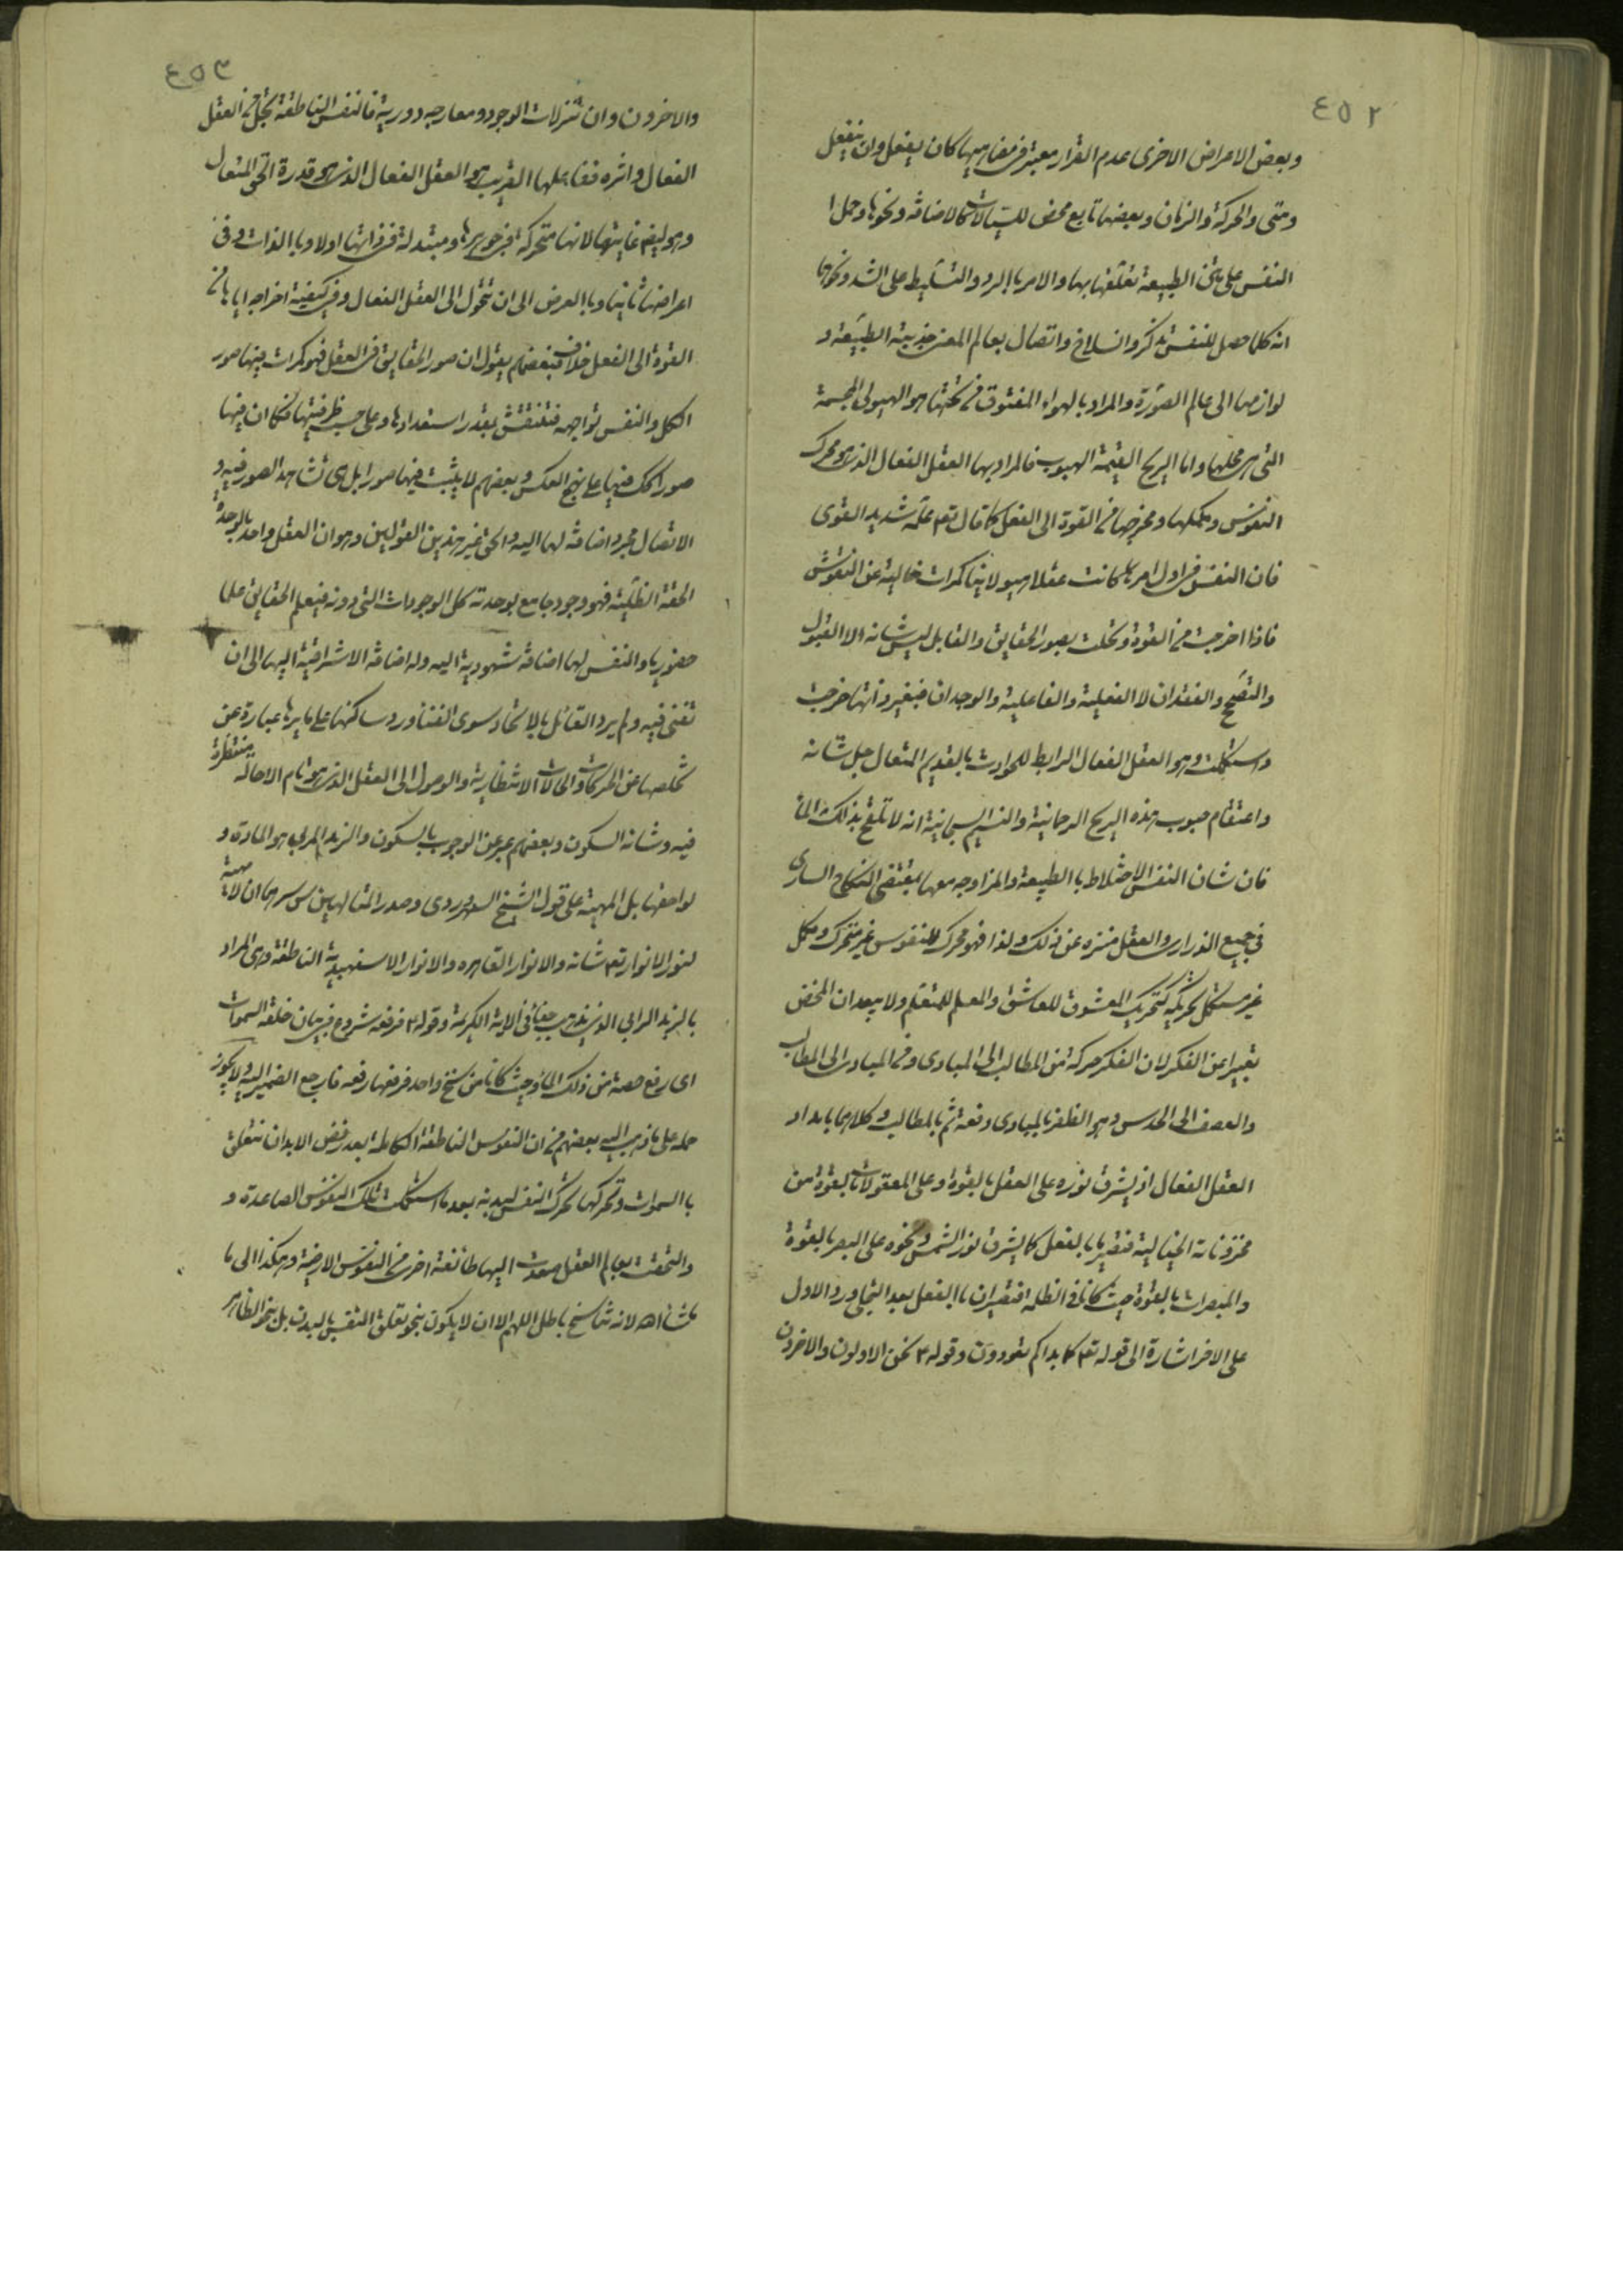 ٤٥٢
وبعض الاعراض الاخرى عدم القرار معتبر فى مفاهيمها كان يفعل وان ينفعل
ومتى والحركة والزمان وبعضها تابع محض للسيالات كالاضافة ونحوها وحمل
النفس على متن الطبيعة تعلقها بها والامر بالرد والتسليط على الشد ونحوها
انه كلما حصل للنفس تذكر وانسلاخ واتصال بعالم المعنى جذبته الطبيعة و
لوازمها الى عالم الصورة والمراد بالهواء المفتوق فى تحتها هو الهيولى المجسمة
التى هى محلها واما الريح العقيمة الهبوب فالمراد بها العقل الفعال الذى هو محرك
النفوس ومكملها ومخرجها من القوة الى الفعل كما قال تعـ علمه شديد القوى
فان النفس فى اول امرها كانت عقلا هيولانيا كمرات خالية عن النقوش
فاذا اخرجت من القوة وتحلت بصور الحقايق والقابل ليس شانه الا القبول
والتصحح والفقدان لا الفعلية والفاعلية والوجدان فبغير ذاتها خرجت
واستكملت وهو العقل الفعال الرابط للحوادث بالقديم المتعال جل شانه
واعتقام هبوب هذه الريح الرحمانية والنسيم السبحانية انه لا تلقح بذلك الماء
فان شان النفس الاختلاط بالطبيعة والمزاوجه معها بمقتضى النكاح السارى
فى جميع الذرارى والعقل منزه عن ذلك ولذا فهو محرك للنفوس غير متحرك ومكمل
غير مستكمل تحريكه كتحريك المعشوق للعاشق والمعلم للمتعلم ولا يبعد ان المخض
تعبيرا عن الفكر لان الفكر حركة من المطالب الى المبادى ومن المبادى الى المطالب
والعصف الى الحدس وهو الظفر بالمبادى دفعة ثم بالمطالب وكلاهما بامداد
العقل الفعال اذ يشرق نوره على العقل بالقوة وعلى المعقولات بالقوة من
مخزوناته الخيالية فتصير بالفعل كما يشرق نور الشمس ونحوه على البصر بالقوة
والمبصرات بالقوة حيث كانا فى الظلمه فتصيران بالفعل بعد التجلى ورد الاول
على الاخر اشارة الى قوله تعـ كما بداكم تعودون وقوله ٣ نحن الاولون والاخرون
٤٥٣
والاخرون وان تنزلات الوجود ومعارجه دورية فالنفس الناطقة تجلى من العقل
الفعال واثره ففاعلها القريب هو العقل الفعال الذى هو قدرة الحق المتعال
وهو ايضم غايتها لانها متحركة فى جوهرها ومتبدلة فى ذاتها اولا وبالذات وفى
اعراضها ثانيا وبالعرض الى ان تتحول الى العقل الفعال وفى كيفية اخراجه اياها من
القوة الى الفعل خلاف فبعضهم يقول ان صور الحقايق فى العقل فهو كمرات فيها صور
الكل والنفس تواجهه فتنتقش بقدر استعدادها وعلى حسب ظرفيتها فكان منها
صورا لك فيها على نهج العكس وبعضهم لا يثبت فيها صورا بل هى تشاهد الصور فيه و
الاتصال مجرد اضافة لها اليه والحق غير هذين القولين وهو ان العقل واحد بالوحدة
الحقة الظلية فهو وجود جامع بوحدته كل الوجودات التى دونه فيعلم الحقايق علما
حضوريا والنفس لها اضافة شهودية اليه وله اضافة الاشراقية اليها الى ان
تفنى فيه ولم يرد القائل بالاتحاد سوى الفناء ورد ساكنها على مايرها عبارة عن
تخلصها عن الحركات والحالات الانتظارية والوصول الى العقل الذى هو تام لا حالة منتظرة
فيه وشانه السكون وبعضهم عبر عن الوجوب بالسكون والزبد المرمى هو المادة و
لواحقها بل المهية على قول الشيخ السهروردى وصدر المتالهين س سرهما ان لا مهية
لنور الانوار تعـ شانه والانوار القاهره والانوار الاسفهبدية الناطقة وهى المراد
بالزبد الرابى الذى يذهب جفاء فى الاية الكريمة وقوله ٣ فرفعه شروع فى بيان خلقه السموات
اى رفع حصة من ذلك الماء وحيث كانا من سنخ واحد فرفعها رفعه فارجع الضمير اليه ولا يجوز
حمله على ما ذهب اليه بعضهم من ان النفوس الناطقة الكاملة بعد رفض الابدان تتعلق
بالسموات وتحركها تحرك النفس لبدنه بعد ما استكملت تلك النفوس الصاعدة و
والتحقت بعالم العقل صعدت اليها طائفة اخرى من النفوس الارضية وهكذا الى ما
شاء الله لانه تناسخ باطل اللهم الا ان لا يكون بنحو تعلق النفس بالبدن بل بنحو الظاهر